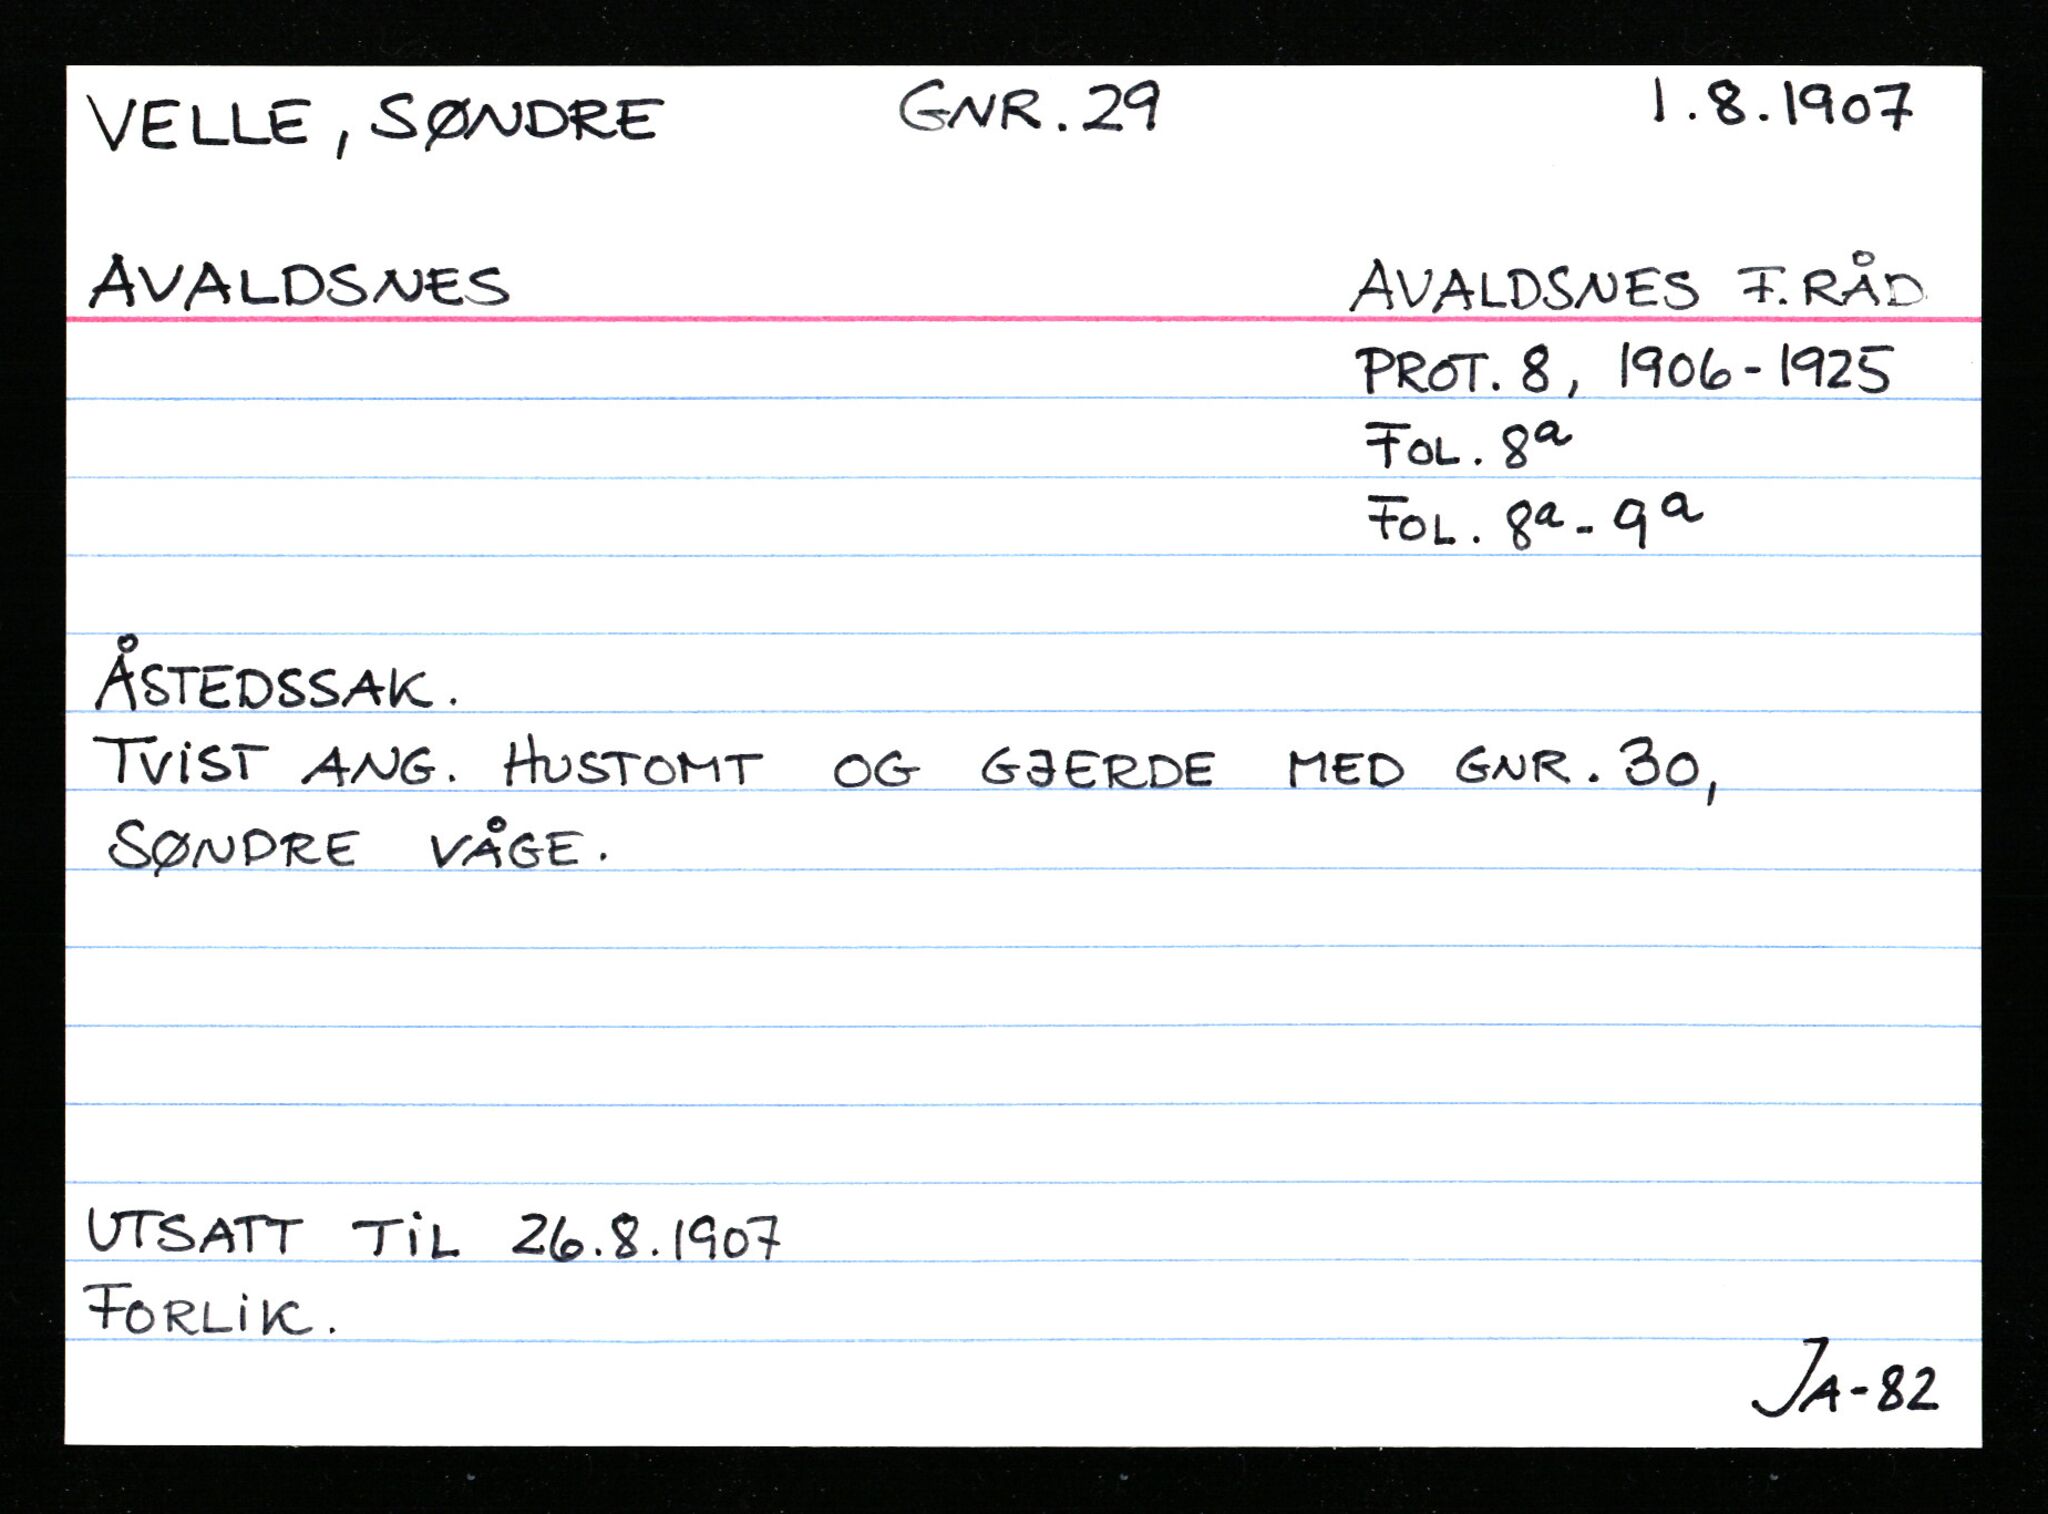 VELLE, SØNDRE GNR. 29 1.8.1907
AVALDSNES AVALDSNES F. RÅD
PROT. 8, 1906-1925
FOL. 8a
FOL. 8a - 9a
ÅSTEDSSAK.
TViST ANG. HUSTOMT OG GJERDE MED GNR. 30,
SØNDRE VÅGE.
UTSATT TiL 26.8.1907
FORLiK.
JA-82